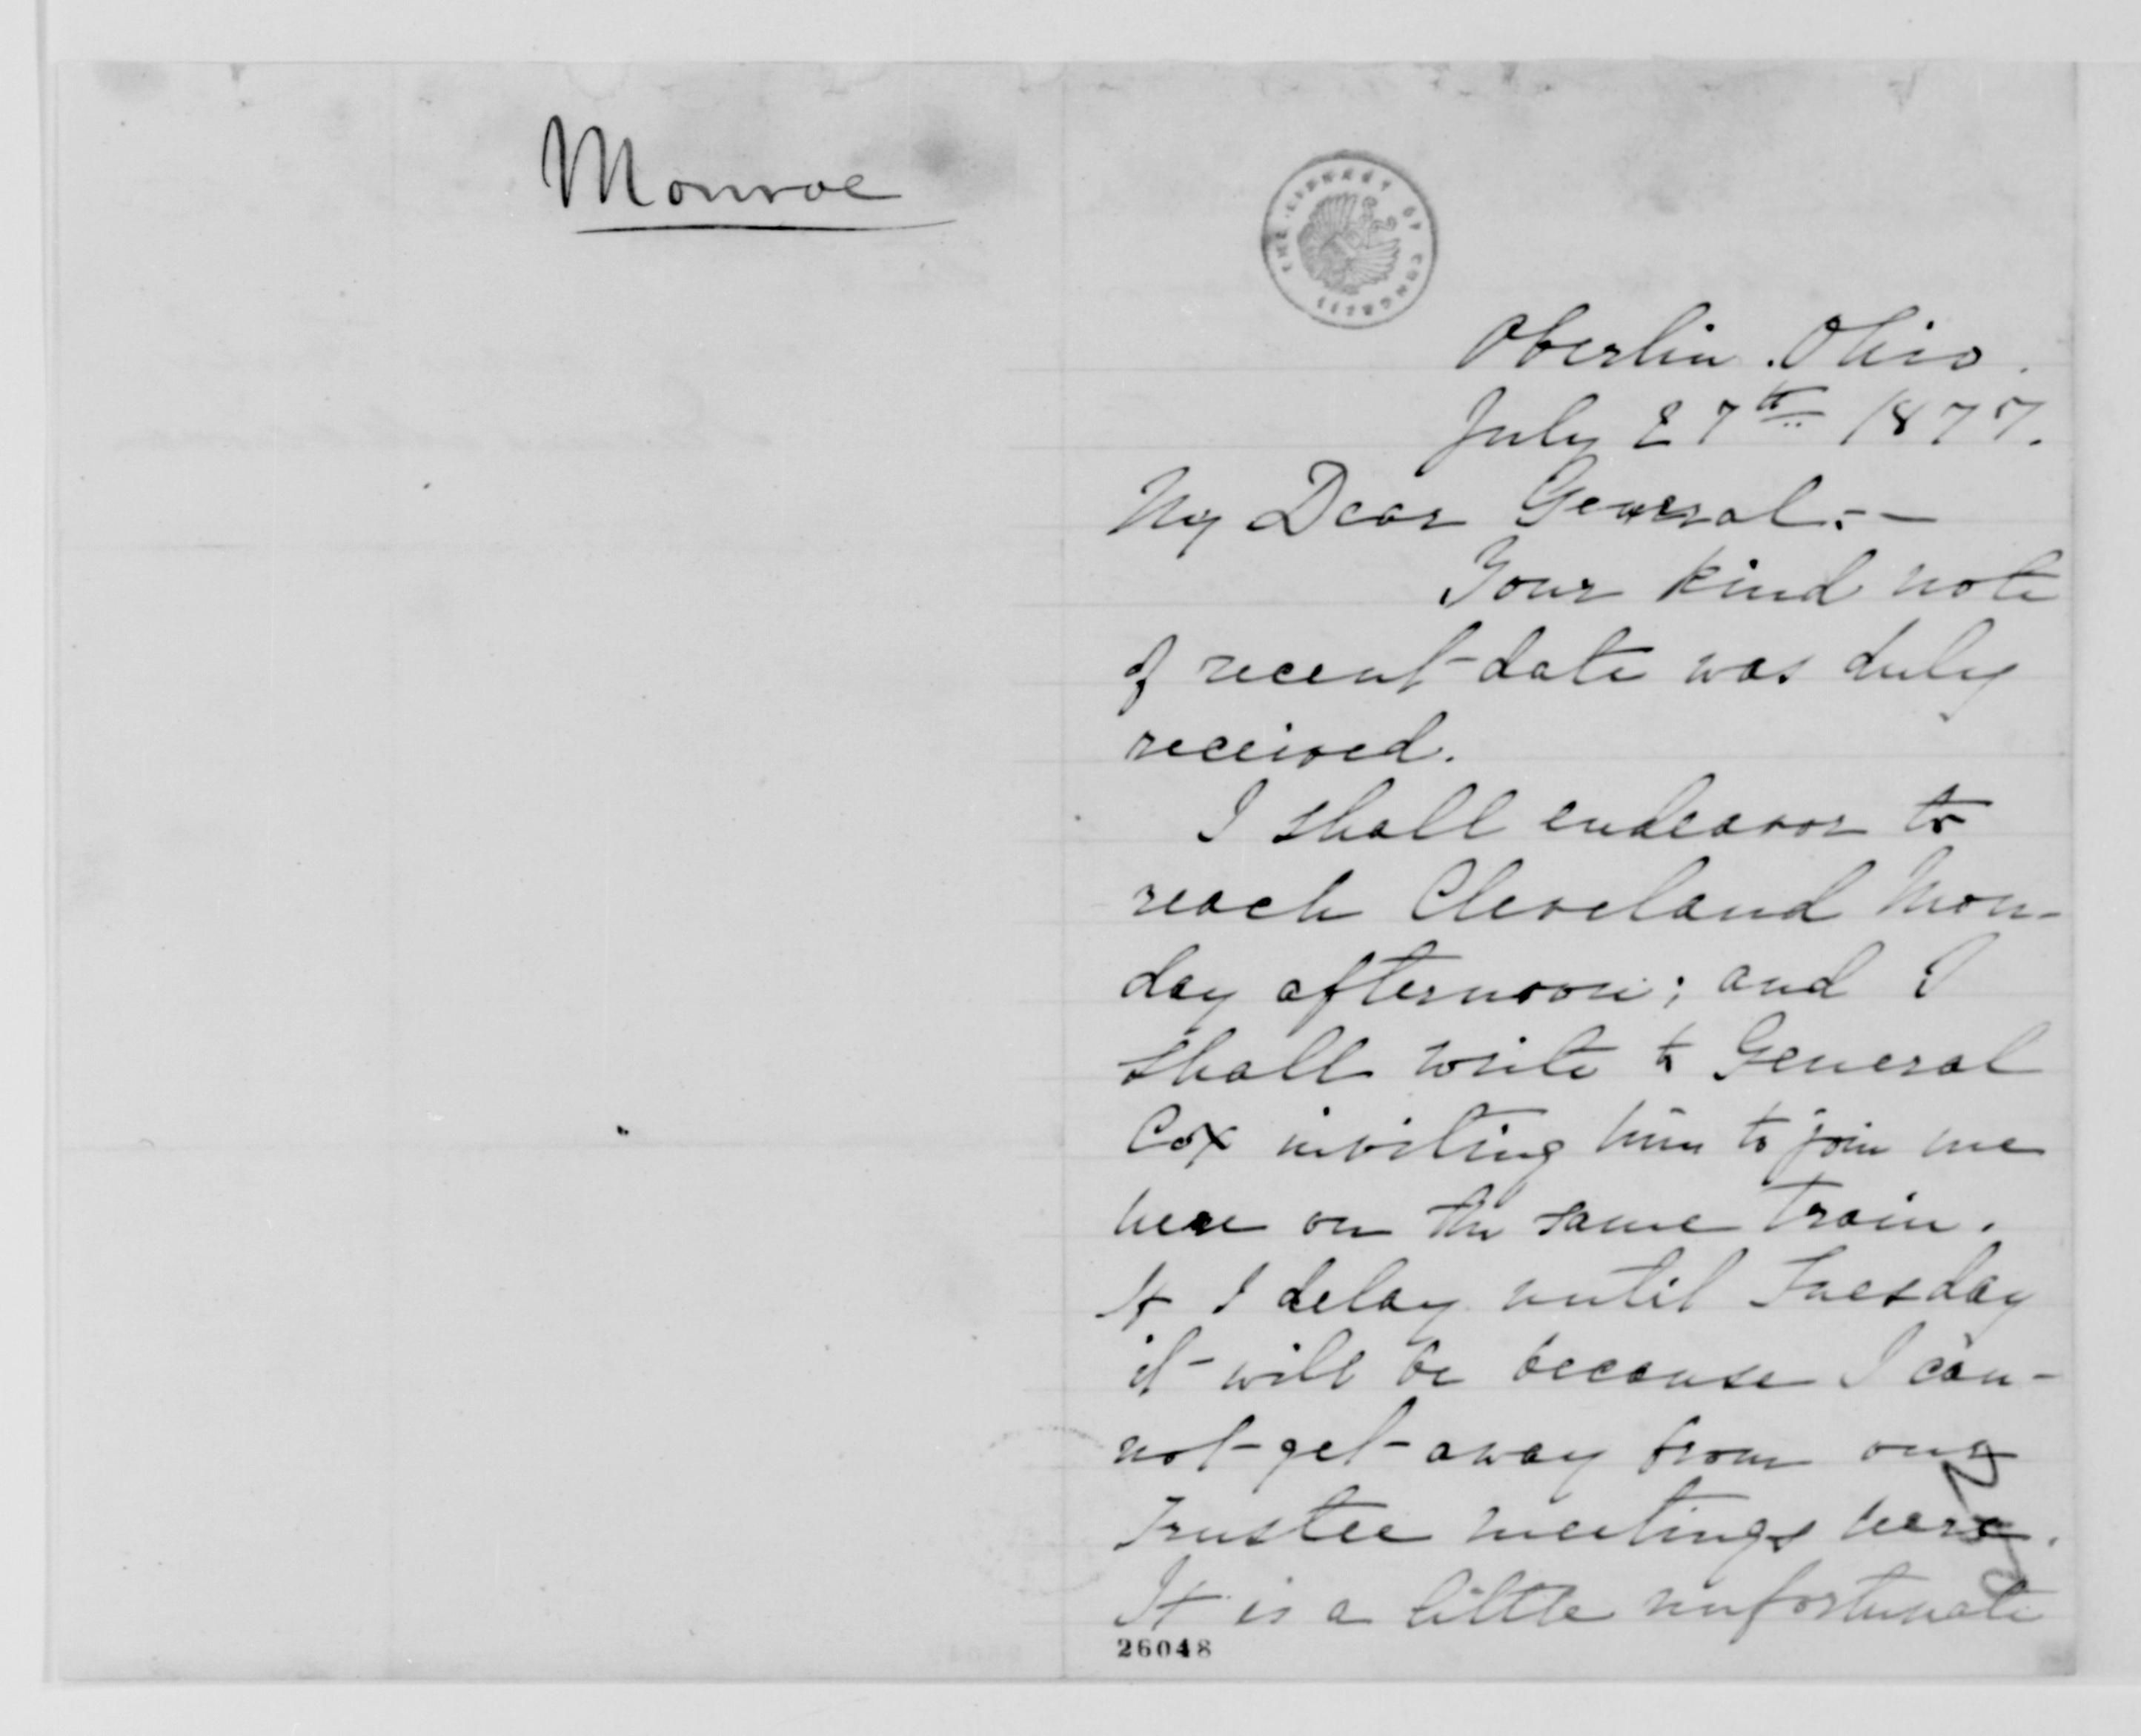 Monroe
THE LIBRARY OF CONGRESS
Oberlin. Ohio.
July 27th 1877.
My Dear General:—
Your kind note
of recent date was duly
received.
I shall endeavor to
reach Cleveland Mon-
day afternoon; and I
shall write to General
Cox inviting him to join me
here on the same train.
If I delay until Tuesday
it will be because I can-
not get away from our
Trustee meetings here.
It is a little unfortunate
26048